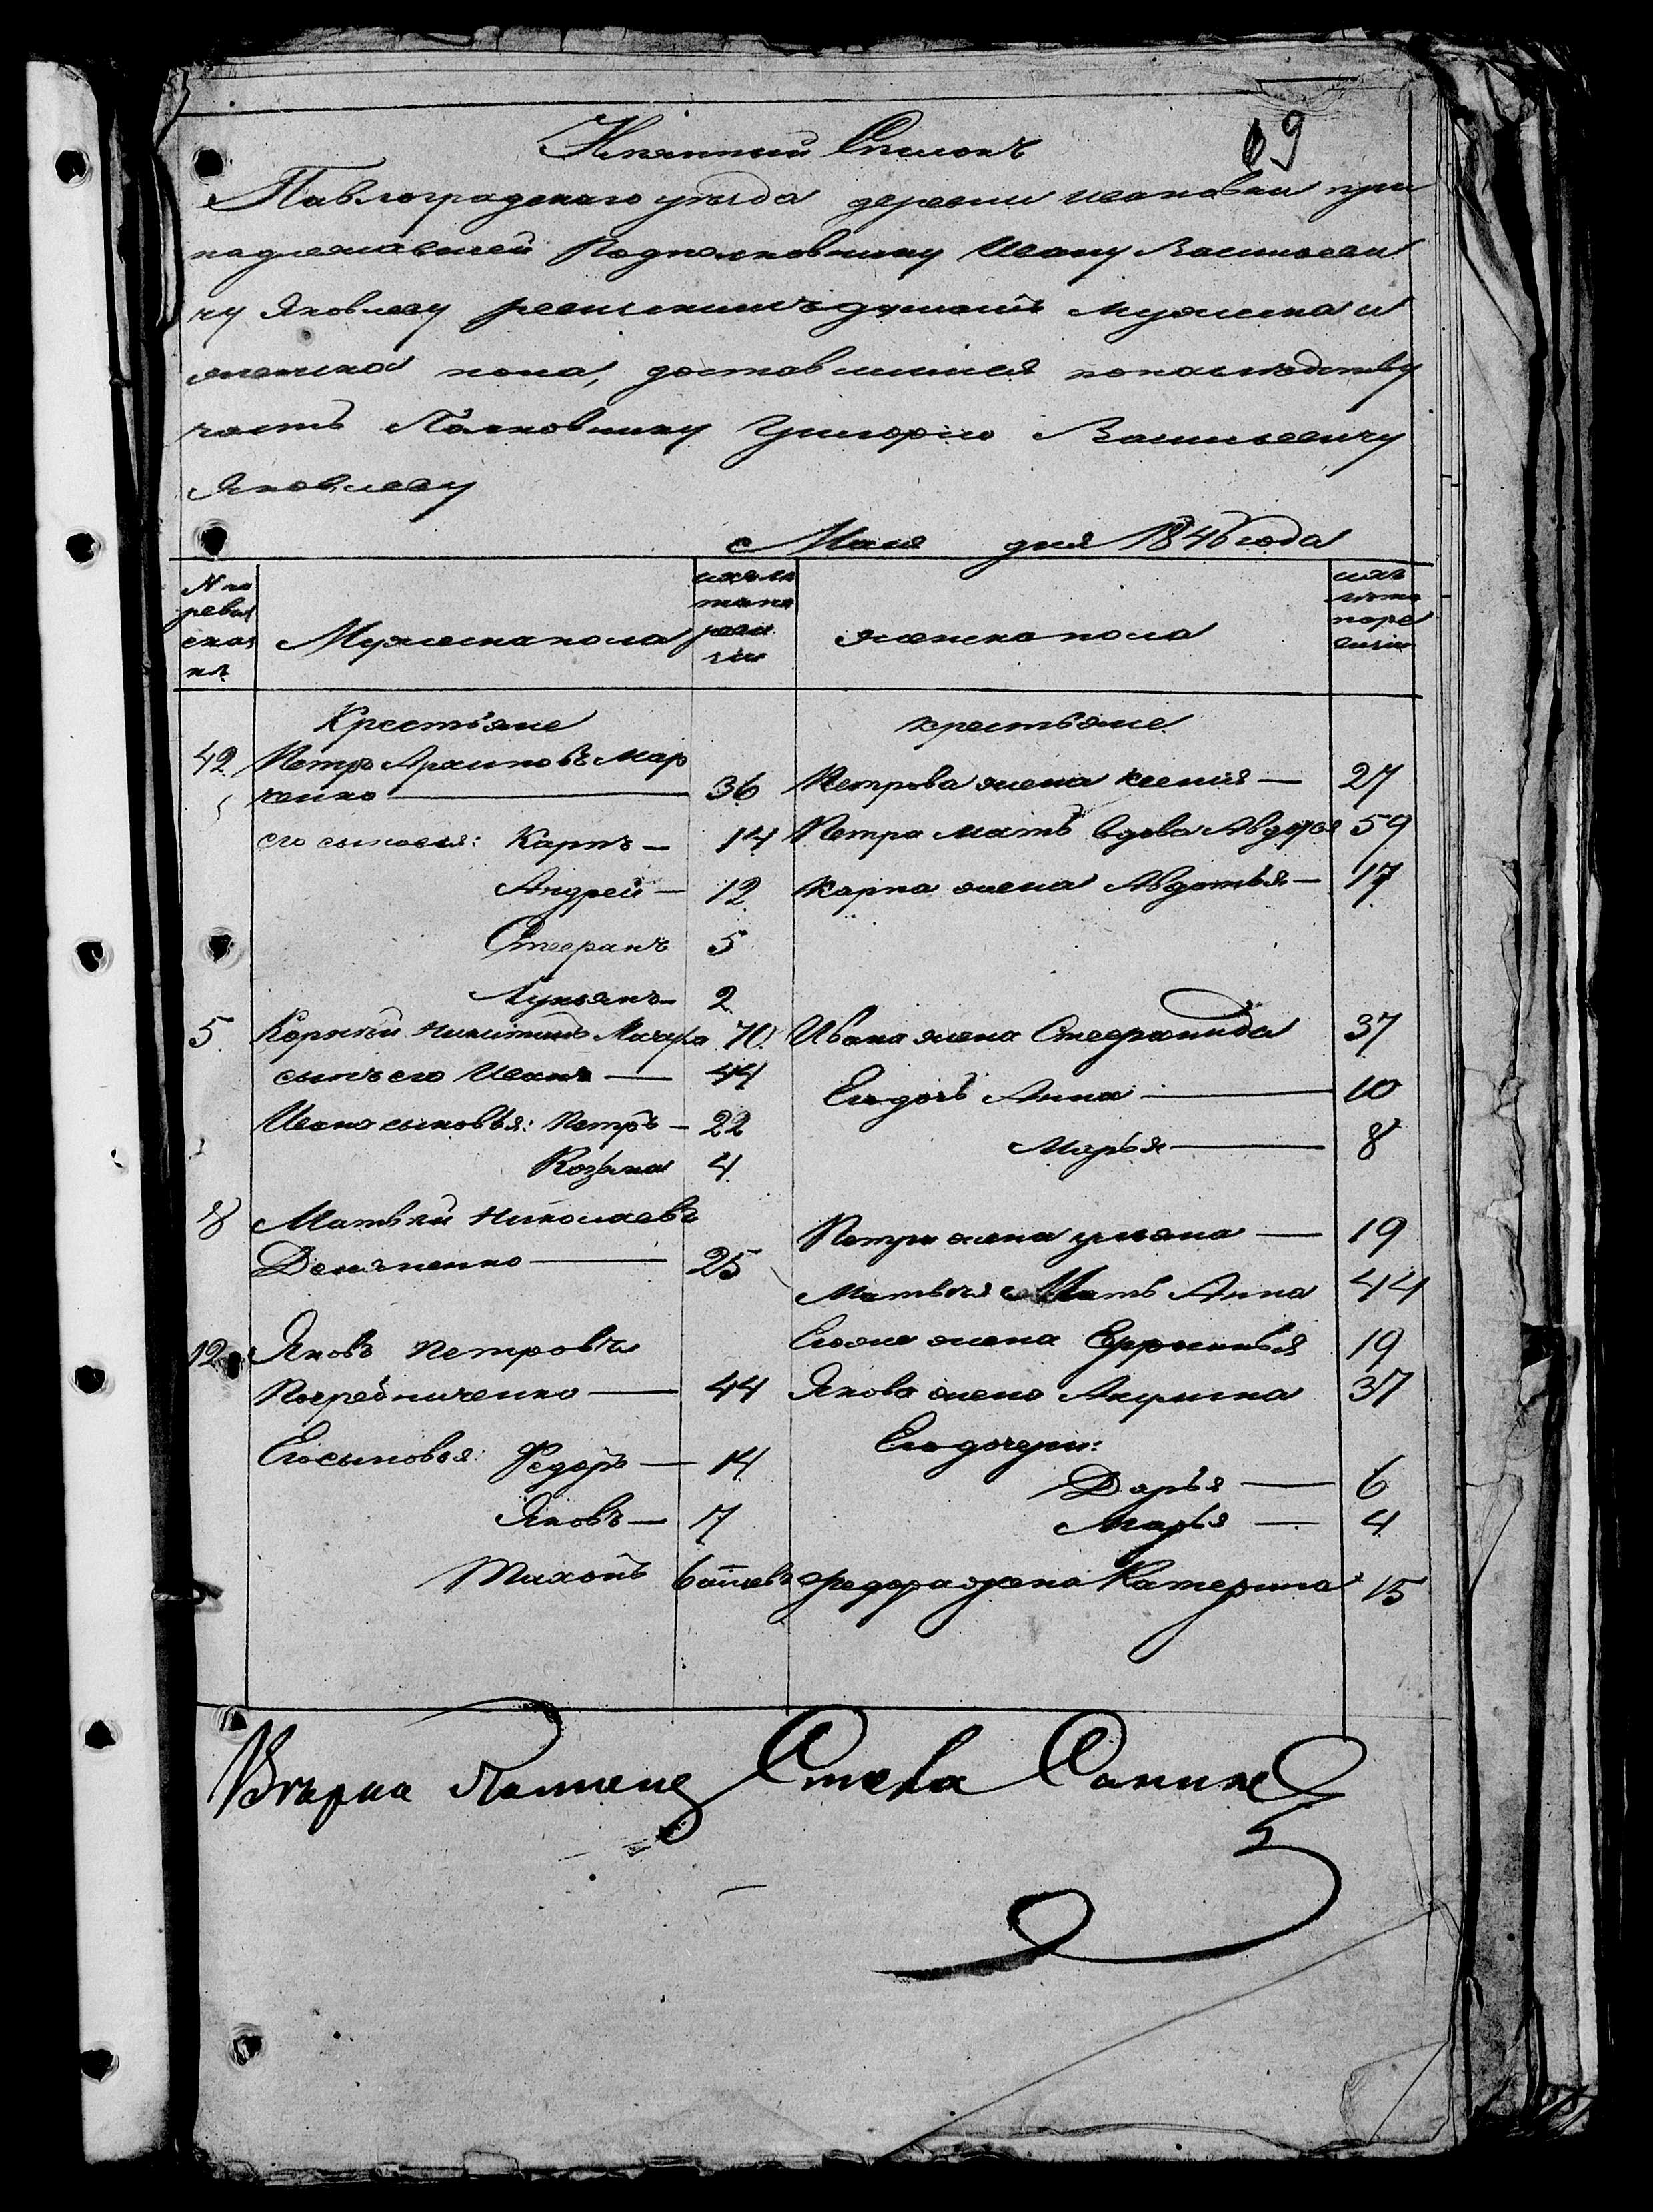 69
Имянный Списокъ
Павлоградскаго уѣзда деревни Ивановки при
надлежавшей Подполковнику Ивану Василиеви
чу Яковлеву ревизскимъ душамъ мужеска и
женска пола, доставшимся понаследству
часть Полковнику Григорию Василиевичу
Яковлеву
Мая дня 1846 года
№ по
ревиз
сказ
кѣ
Мужеска пола
женска пола
Крестьяне
крестьяне
42 Петръ Архиповъ Мар
ченко 36
Петрова жена Ксения 27
его сыновья: Карпъ 14
Петра мать вдова Авдотья 59
Андрей 12
Карпа жена Авдотья 17
Стефанъ 5
Лукьянъ 2
5 Корней Никитинъ 70
Ивана жена Стефанида 37
сынъ его Иванъ 44
Его дочь Анна 10
Ивана сыновья: Петръ 22
Марья 8
Козьма 4
8 Матвѣй Николаевъ
Петра жена Ульяна 19
25
Матвѣя Мать Анна 44
12 Яковъ Петровъ
Его же жена Ефросинья 19
Погребниченко 44
Якова жена Акулина 37
Его сыновья: Федоръ 14
Его дочери:
Дарья 6
Яковъ 7
Марья 4
Тихонъ
Федора жена Катерина 15